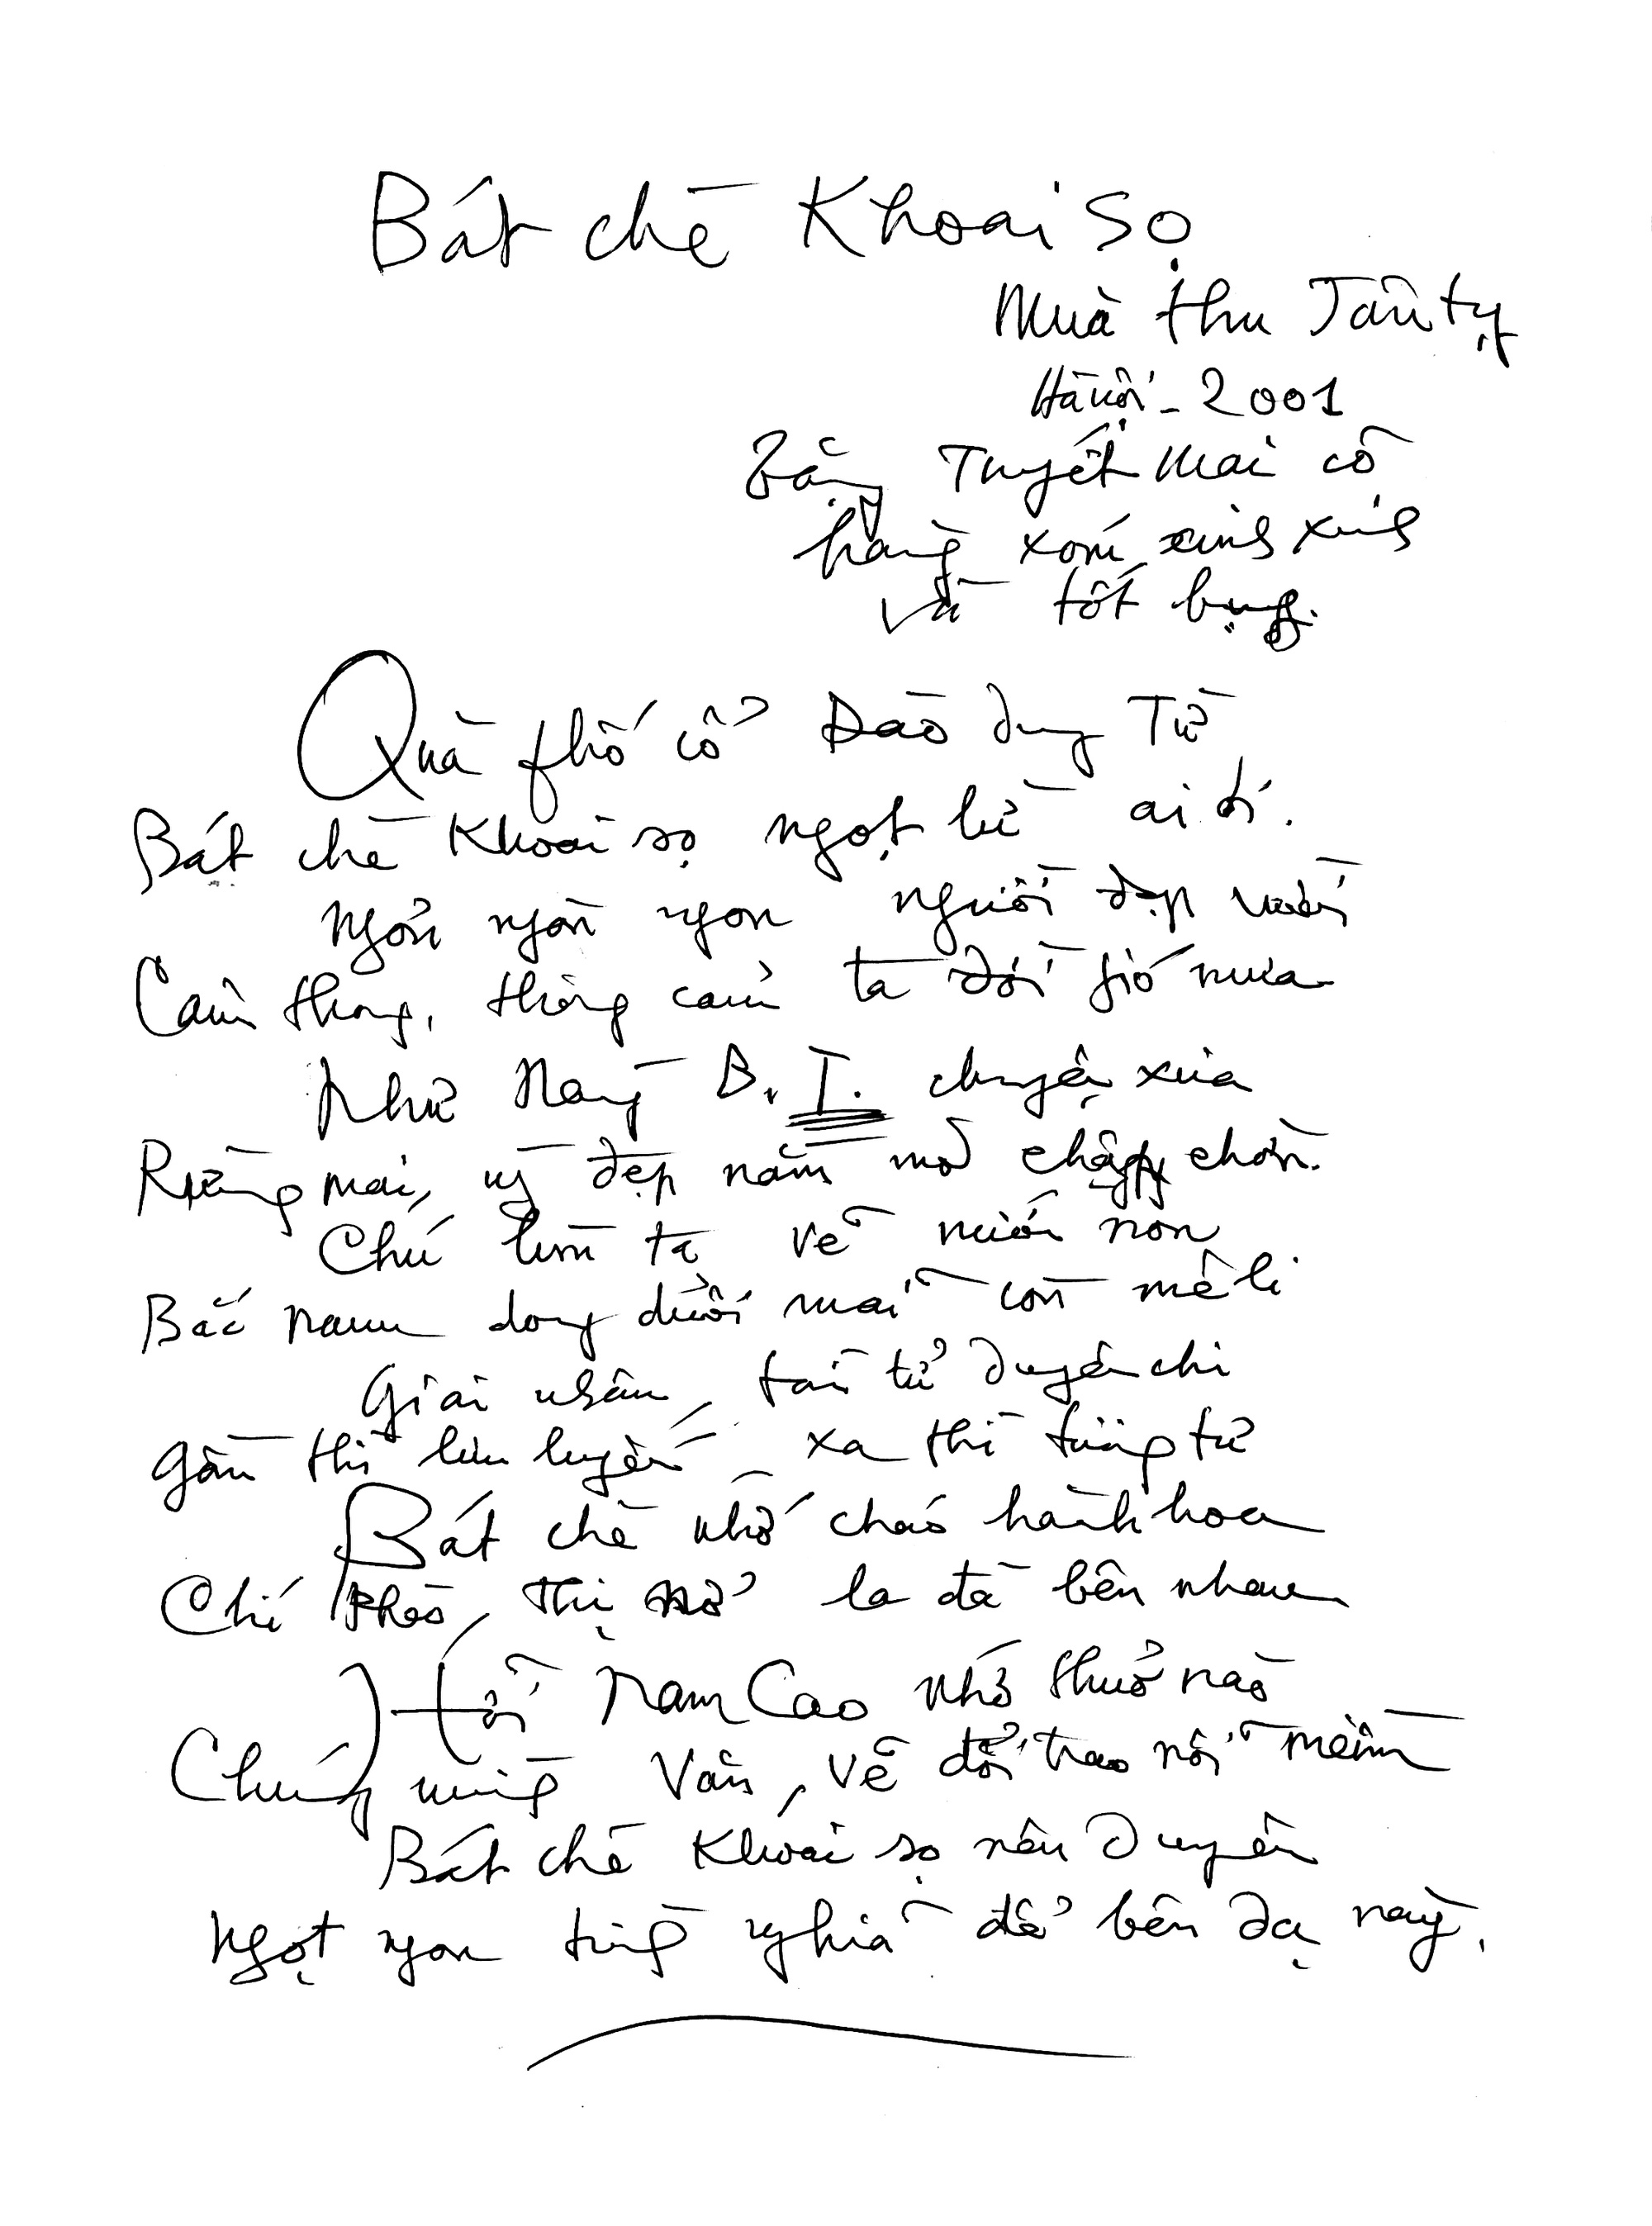 Bát chè Khoai Sọ
Mùa thu Tân tỵ
Hà nội - 2001
Tặng Tuyết Mai cô
hàng xóm xinh xinh
và tốt bụng.
Quà phố cổ Đào duy Từ
Bát chè Khoai sọ ngọt lừ ai ơi.
Ngon người đẹp
Cảm thông, thông cảm ta đời gió mưa
Như Nàng B. T. chuyện xưa
Rừng mai, đẹp nằm mơ chập chờn.
Chú lùn ta về núi non
Bắc nam dong duổi mãi còn mê li
Giai nhân, tài tử duyên chi
Gần thì lưu luyến - xa thì tương tư
Bát chè nhớ cháo hành hoa
Chí Phèo, Thị Nở la đà bên nhau
tôi Nam Cao nhớ thuở nào
Chúng mình Văn, Vẽ đổi trao nỗi mềm
Bát chè Khoai sọ nên Duyên
Ngọt ngon tình nghĩa để bên dạ này.